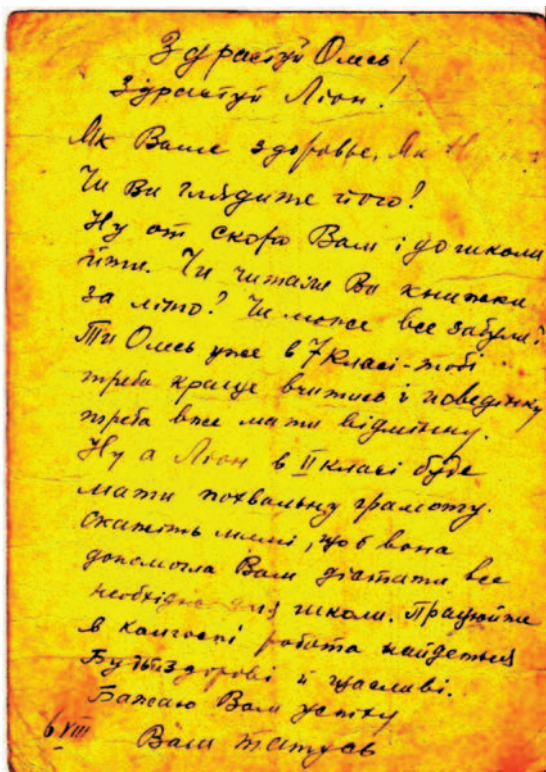 Здрастуй Олесь!
Здрастуй Ліон!
Як Ваше здоровье, Як
Чи Ви глядите його!
Ну от скоро Вам і до школи
йти. Чи читали Ви книжки
за літо? Чи може все забули?
Ти Олесь уже в 7 класі - тобі
треба краще вчитись і поведінку
треба вже мати відмінну.
Ну а Ліон в II класі буде
мати похвальну грамоту.
Скажіть мамі, щоб вона
допомогла Вам дістати все
необхідне для школи. Працюйте
в колгоспі робота найдеться
Будьте здорові й щасливі.
Бажаю Вам успіху
6 VIII Ваш татусь